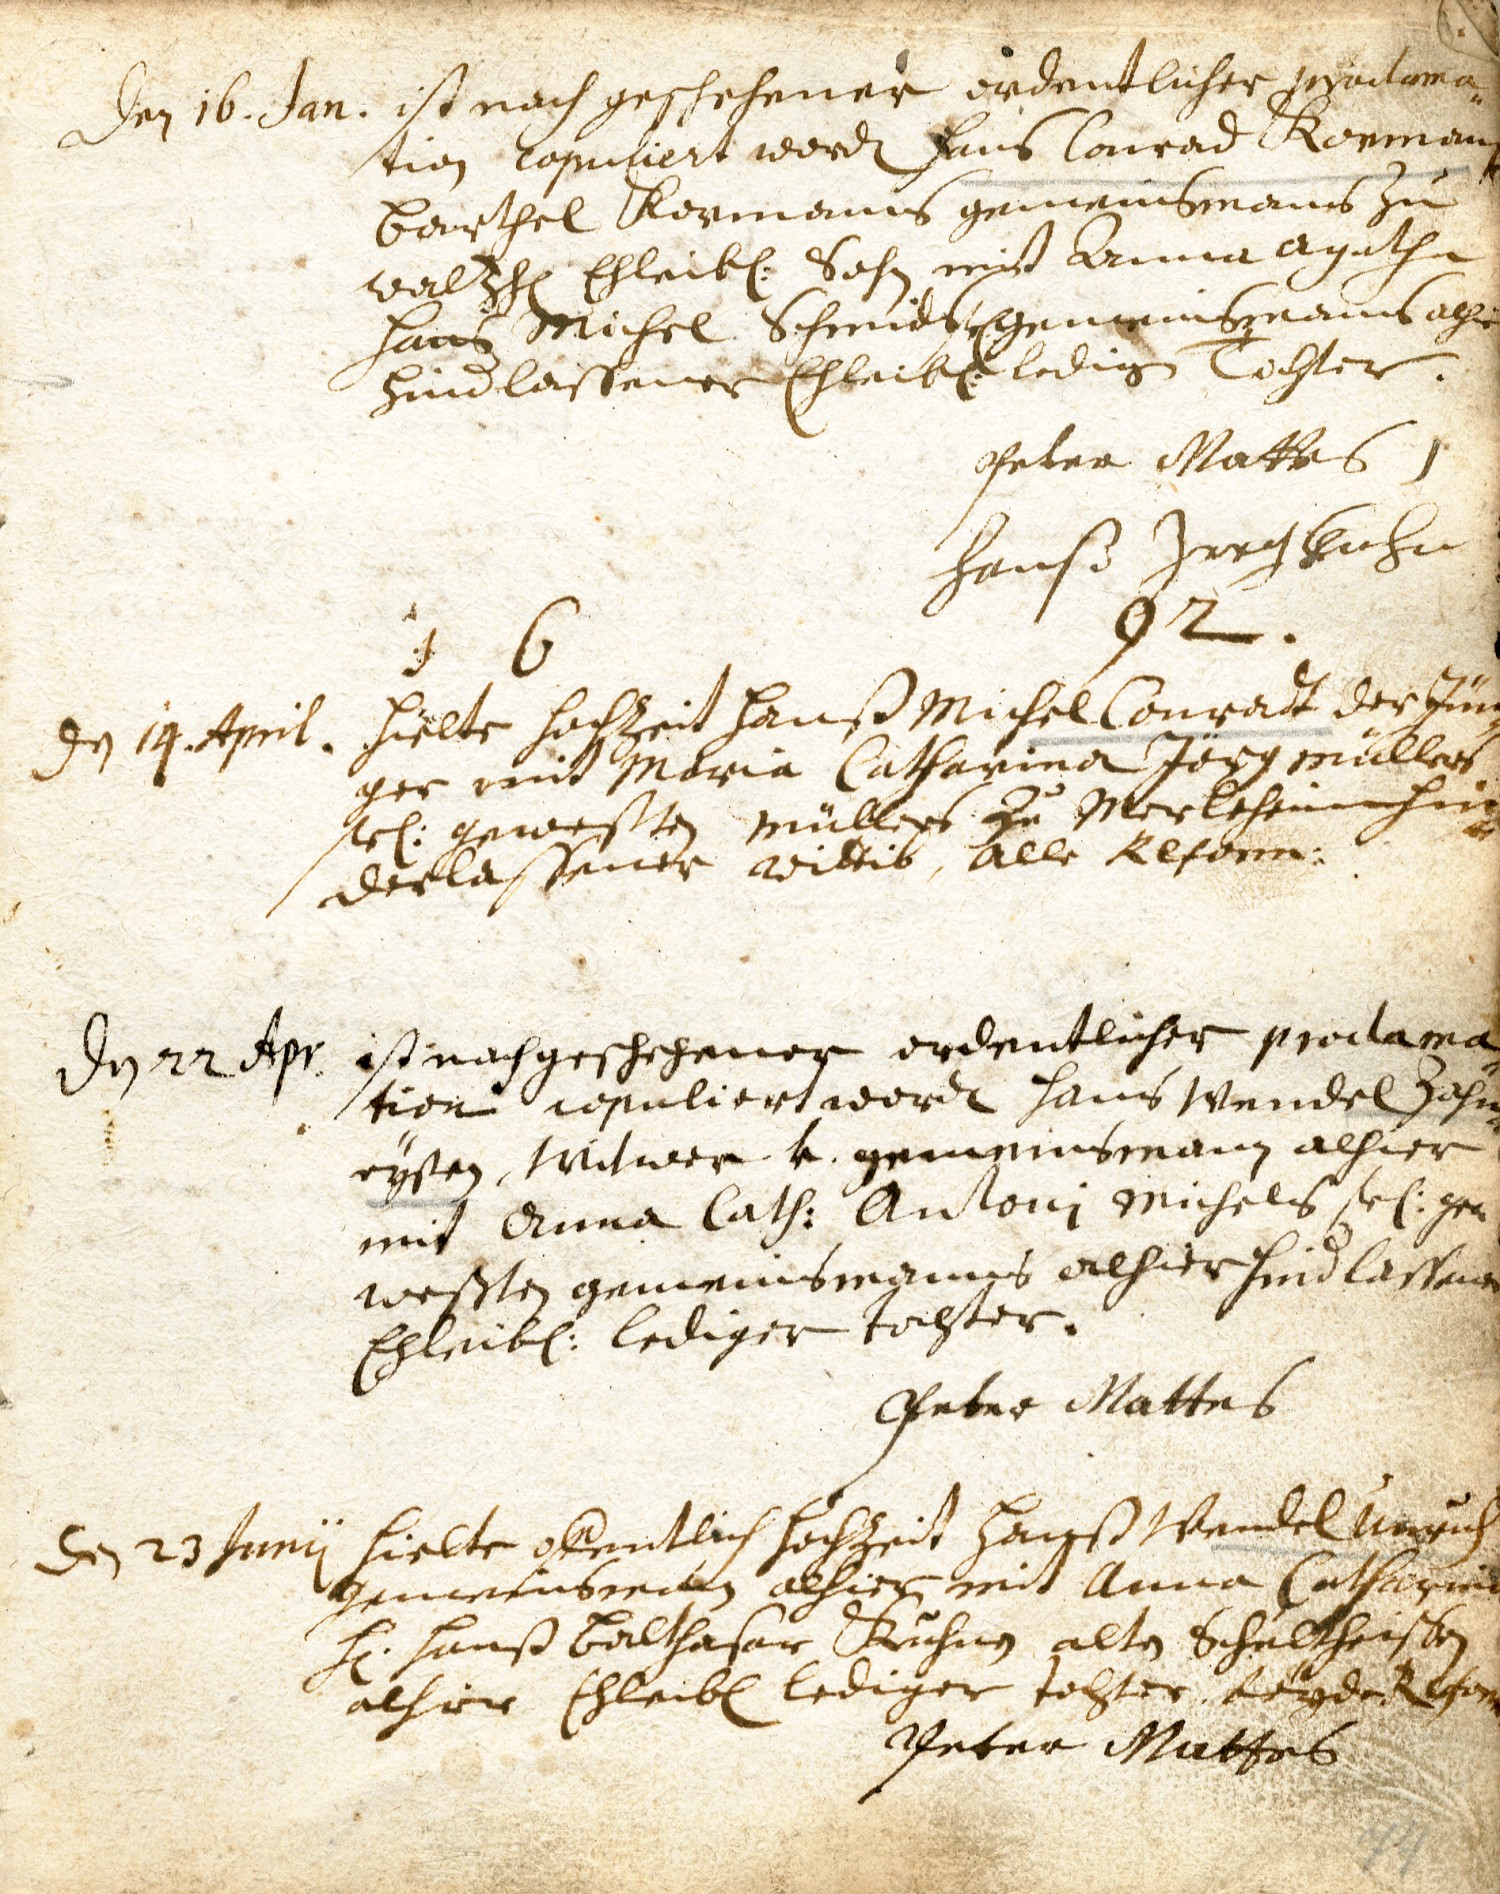 Den 16. Jan. ist nach geschehener ordentlicher proclama-
tion copuliert word Hans Conrad Korman
Barthel Kormans gemeinsmans zu
Ehleibl: Sohn mit Anna Agatha
Hans Michel Schmids gemeinsmans alhie
hindlassener Ehleibl: ledige Tochter.
Peter Mattes
Hanß Jerg Kuhn
16 92.
Den 14. April. hielte hochzeit Hanß Michel Conradt der Jün
ger mit Maria Catharina Jörg müllers
sel: geweßten müllers zu Merleheim hin
derlassener wittib, alle Reform:
Den 22 Apr. ist nach geschehener ordentlicher proclama-
tion copuliert word Hans Wendel Zahn-
eysen, Witwer v. gemeinsmann alhier
mit Anna Cath: Antoni Michels sel: ge-
weßten gemeinsmanns alhier hindlassener
Ehleibl: lediger tochter.
Peter Mattes
Den 23 Junij hielte offentlich hochzeit Hanß Wendel Unruh
gemeinsman alhier mit Anna Catharina
H. Hanß Balthasar Kuhnen alten Schultheißen
alhier Ehleibl lediger tochter. beyde Reform
Peter Mattes